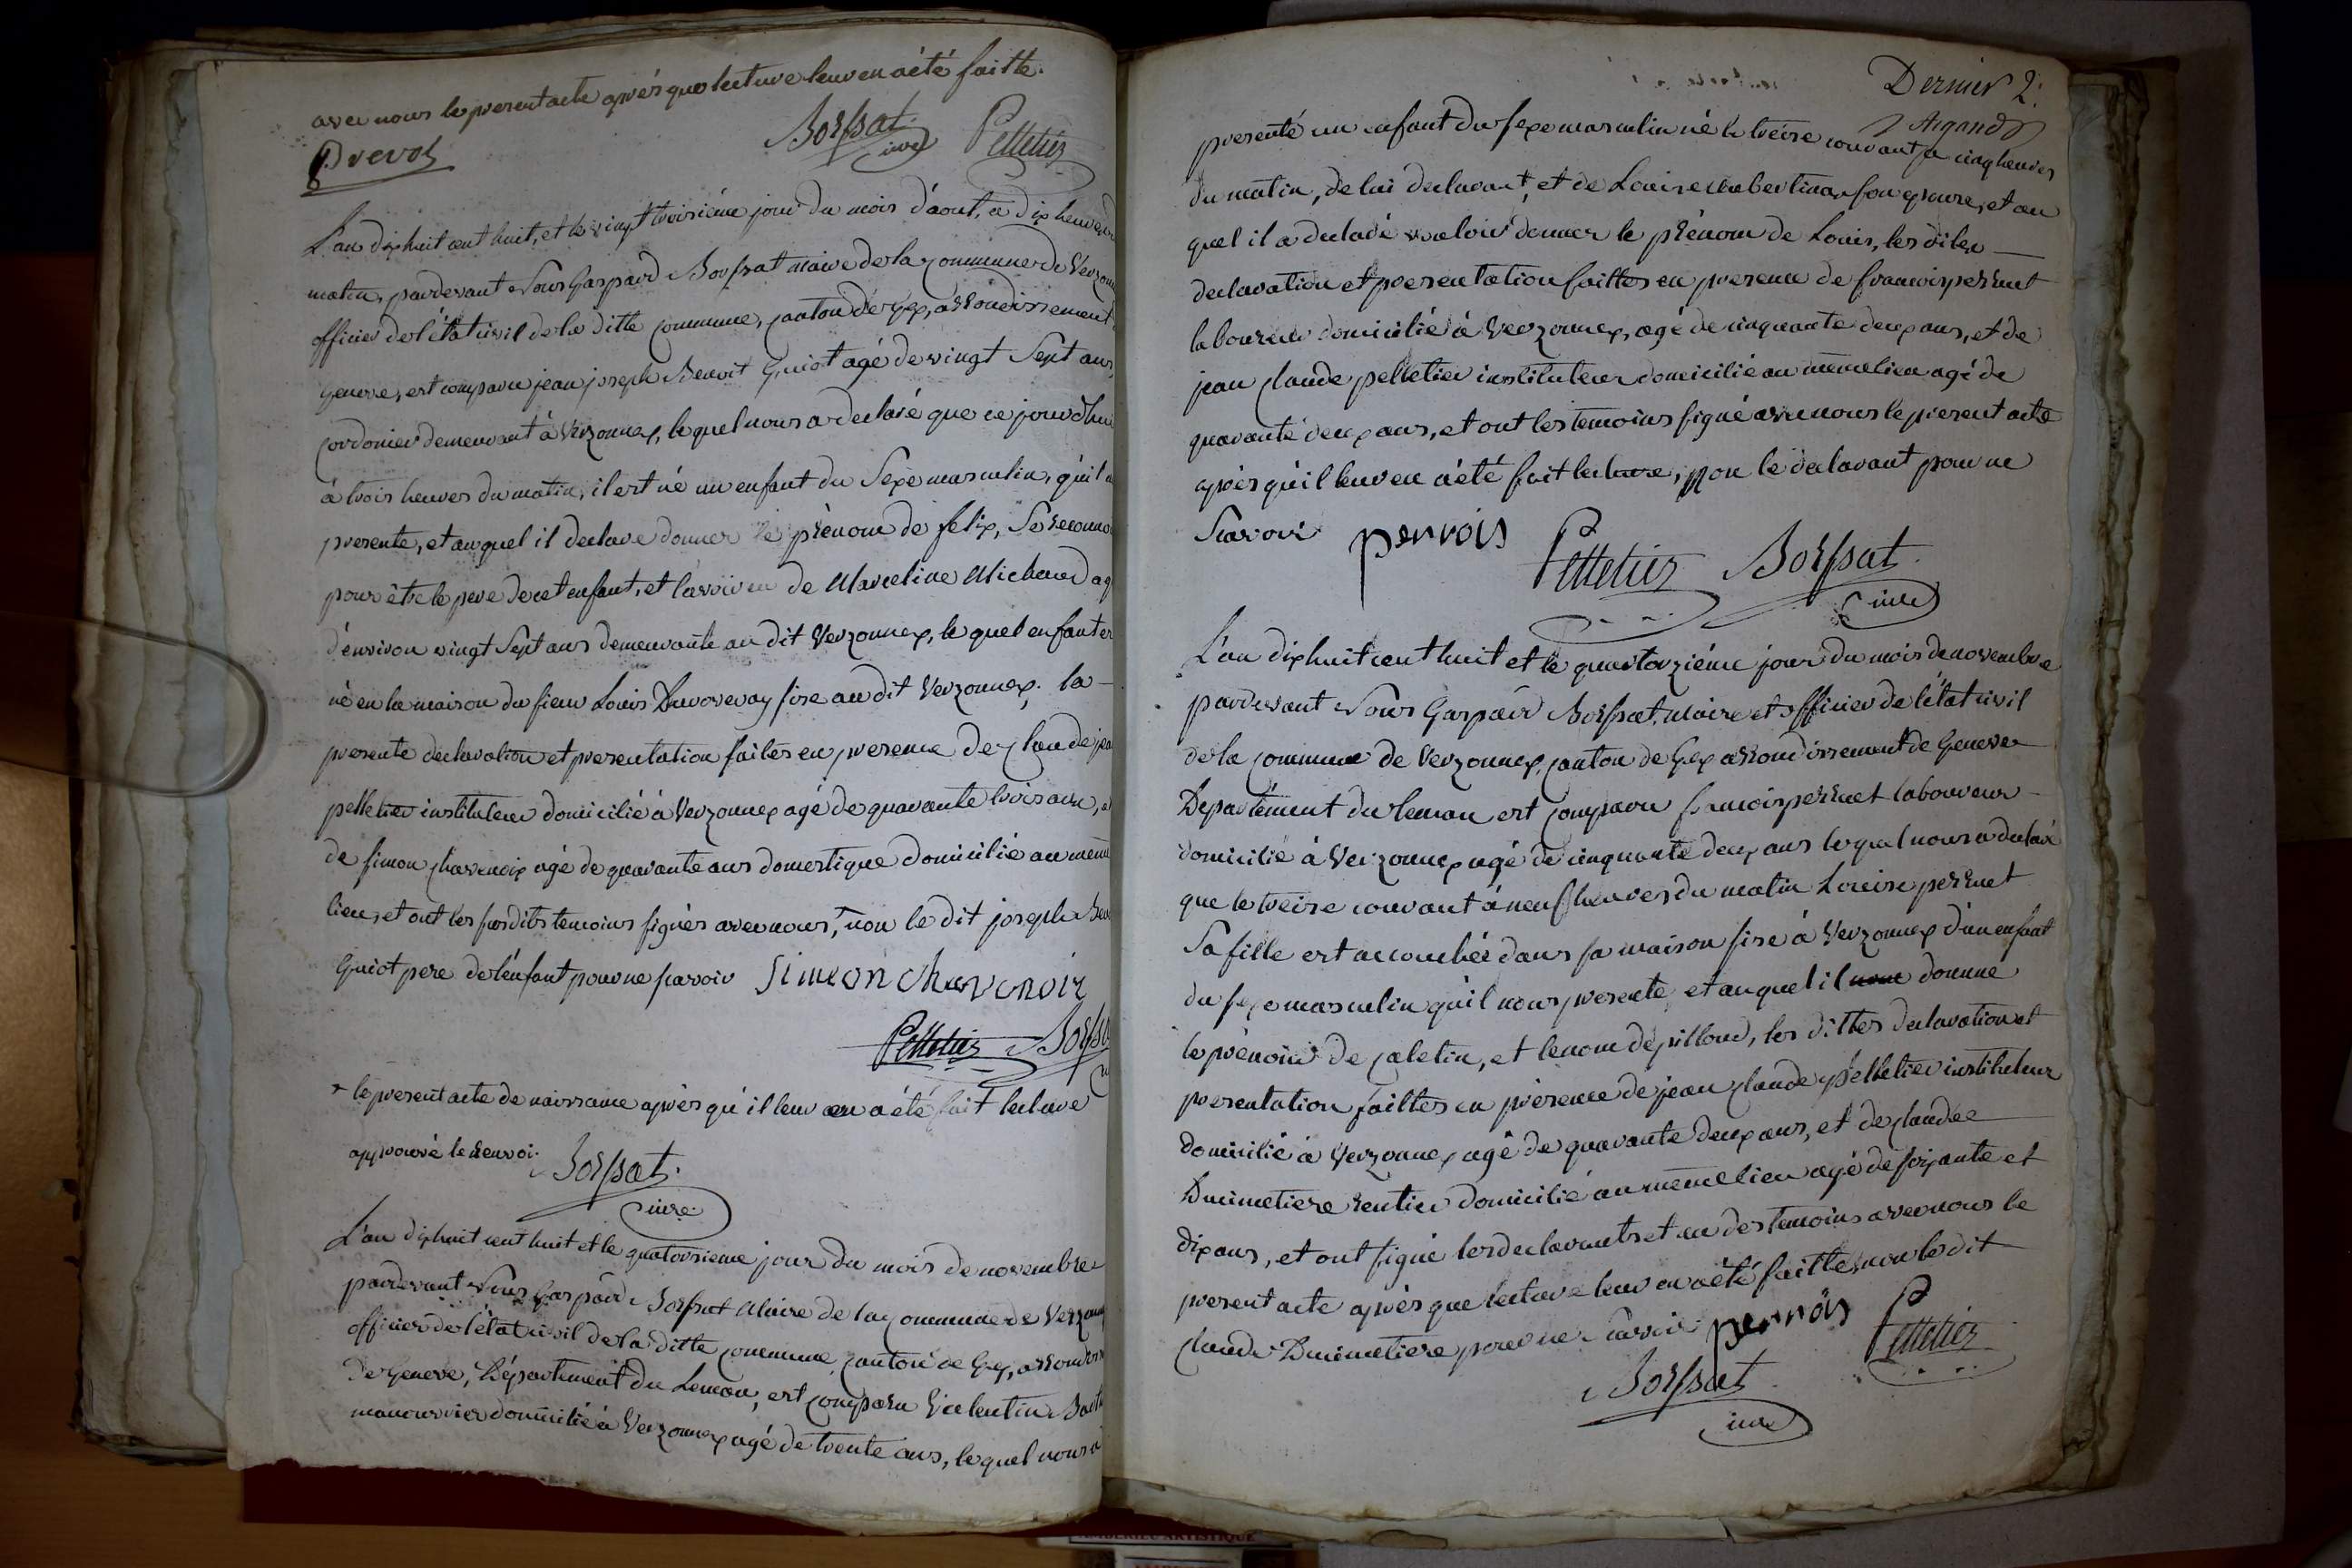 avec nous le present acte après que lecture leur en a été faitte.
Borssat
Pelletier
L'an dix huit cent huit, et le vingt troisiéme jour du mois d'aout, à dix heures
matin, pardevant Nous Gaspard Borssat maire de la commune de Verzonnex
officier de l'état civil de la ditte commune, canton de Gex, arrondissement
Geneve, est comparu jean joseph Benoit Guiot agé de vingt Sept ans,
cordonier demeurant à Verzonnex, lequel nous a declaré que ce jourdhui
à trois heures du matin, il est né un enfant du Sexe masculin, qu'il
presente, et auquel il declare donner le prénom de felix, Se reconno
pour être le pere de cet enfant, et l'avoir eu de Marceline Michaud ag
d'environ vingt Sept ans demeurante au dit Verzonnex, lequel enfant e
né en la maison du sieur Louis Duvovray sise au dit Verzonnex. la
presente declaration et presentation faites en presence de claude jea
pelletier instituteur domicilié à Verzonnex agé de quarante trois ans, e
de simon chavenoix agé de quarante ans domestique domicilié au même
lieu, et ont les susdits temoins signés avec nous, non le dit joseph Ben
Guiot pere de l'enfant pour ne savoir simeon chavenoir
Pelletier Borssa
+ le present acte de naissance après qu'il leur en a été fait lecture
approuvé le renvoi.
Borssat
mre
L'an dix huit cent huit et le quatorsieme jour du mois de novembre
pardevant Nous Gaspard Borssat Maire de la commune de Verzonne
officier de l'état civil de la ditte commune canton de Gex, arrondiss
de Geneve, Département du Leman, est comparu Valentin
manouvrier domicilié à Verzonnex agé de trente ans, lequel nous a
Dernier 2.
Argand
presenté un enfant du sexe masculin né le treise courant a cinq heures
du matin, de lui declarant, et de Louise chabertina son epouse, et au
quel il a declaré vouloir donner le prénom de Louis, les dites
declaration et presentation faittes en presence de francois perruet
laboureur domicilié à Verzonnex, agé de cinquante deux ans, et de
jean claude pelletier instituteur domicilié au même lieu agé de
quarante deux ans, et ont les temoins signé avec nous le present acte
après qu'il leur en a été fait lecture, non le declarant pour ne
Savoir perrois Pelletier Borssat
mre
L'an dix huit cent huit et le quartorziéme jour du mois de novembre
pardevant Nous Gaspard Borssat, maire et officier de l'état civil
de la commune de Verzonnex, canton de Gex arrondissement de Geneve
Departement du leman est comparu francois perruet laboureur
domicilié à Verzonnex agé de cinquante deux ans lequel nous a declaré
que le treise courant à neuf heures du matin Louise perruet
Sa fille est accouchée dans sa maison sise à Verzonnex d'un enfant
du sexe masculin qu'il nous presente et auquel il nom donné
le prénom de caletin, et le nom de pilloud, les dittes declaration et
presentation faittes en présence de jean claude pelletier instituteur
domicilié à Verzonnex agé de quarante deux ans, et de claude
Ducimetiere rentier domicilié au même lieu agé de soixante et
dix ans, et ont signé les declarants et un des temoins avec nous le
present acte après que lecture leur en a été faitte non le dit
claude Ducimetiere pour ne savoir perrois Pelletier
Borssat
mre